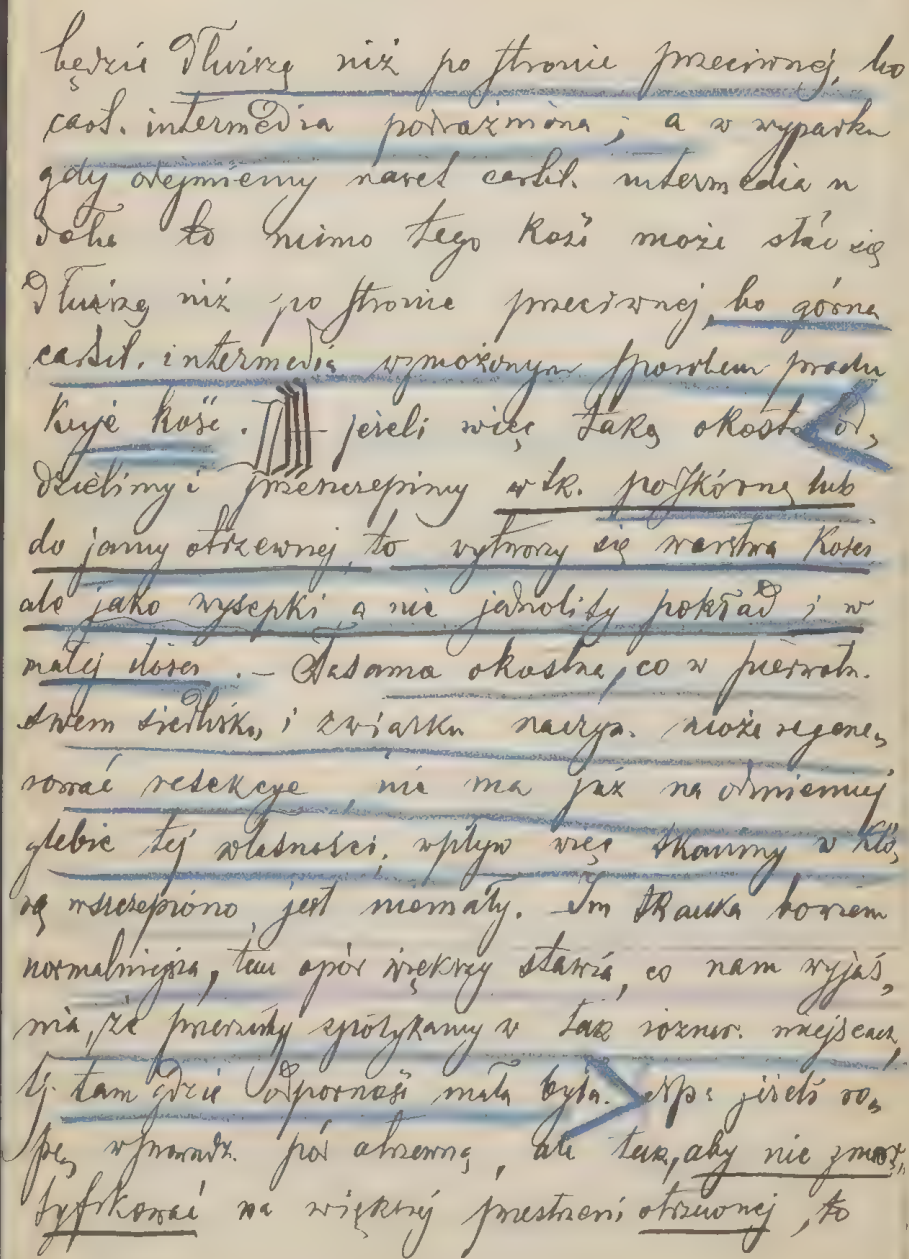 będzie dłuższą niż po stronie przeciwnej, bo
cart. intermedia podrażniona; a w wypadku
gdy odejmiemy nawet cartil. intermedia u
dołu to mimo tego kość może stać się
dłuższą niż po stronie przeciwnej, bo górna
cartil. intermedia wzmożonym sposobem produ
kuje kość. jeżeli więc taką okostną od„
dzielimy i przeszczepimy w tk. podskórną lub
do jamy otrzewnej, to wytworzy się warstwa kości
ale jako wysepki a nie jednolity pokład i w
małej ilości. – Tasama okostna, co w pierwotn.
swem siedlisku, i związku naczyn. może regene„
rować resekcye, nie ma już na odmiennej
glebie tej własności, wpływ więc tkanny w któ„
rą wszczepiono jest niemały. Im tkanka bowiem
normalniejsza, tem opór większy stawia, co nam wyjaś„
nia, że przerzuty spotykamy w tak rozmor. miejscach,
tj. tam gdzie odporność mała była. Np: jeżeli ro„
pę wprowadz. pod otrzewną, ale tak, aby nie zmor„
tyfikować na większej przestrzeni otrzewnej, to